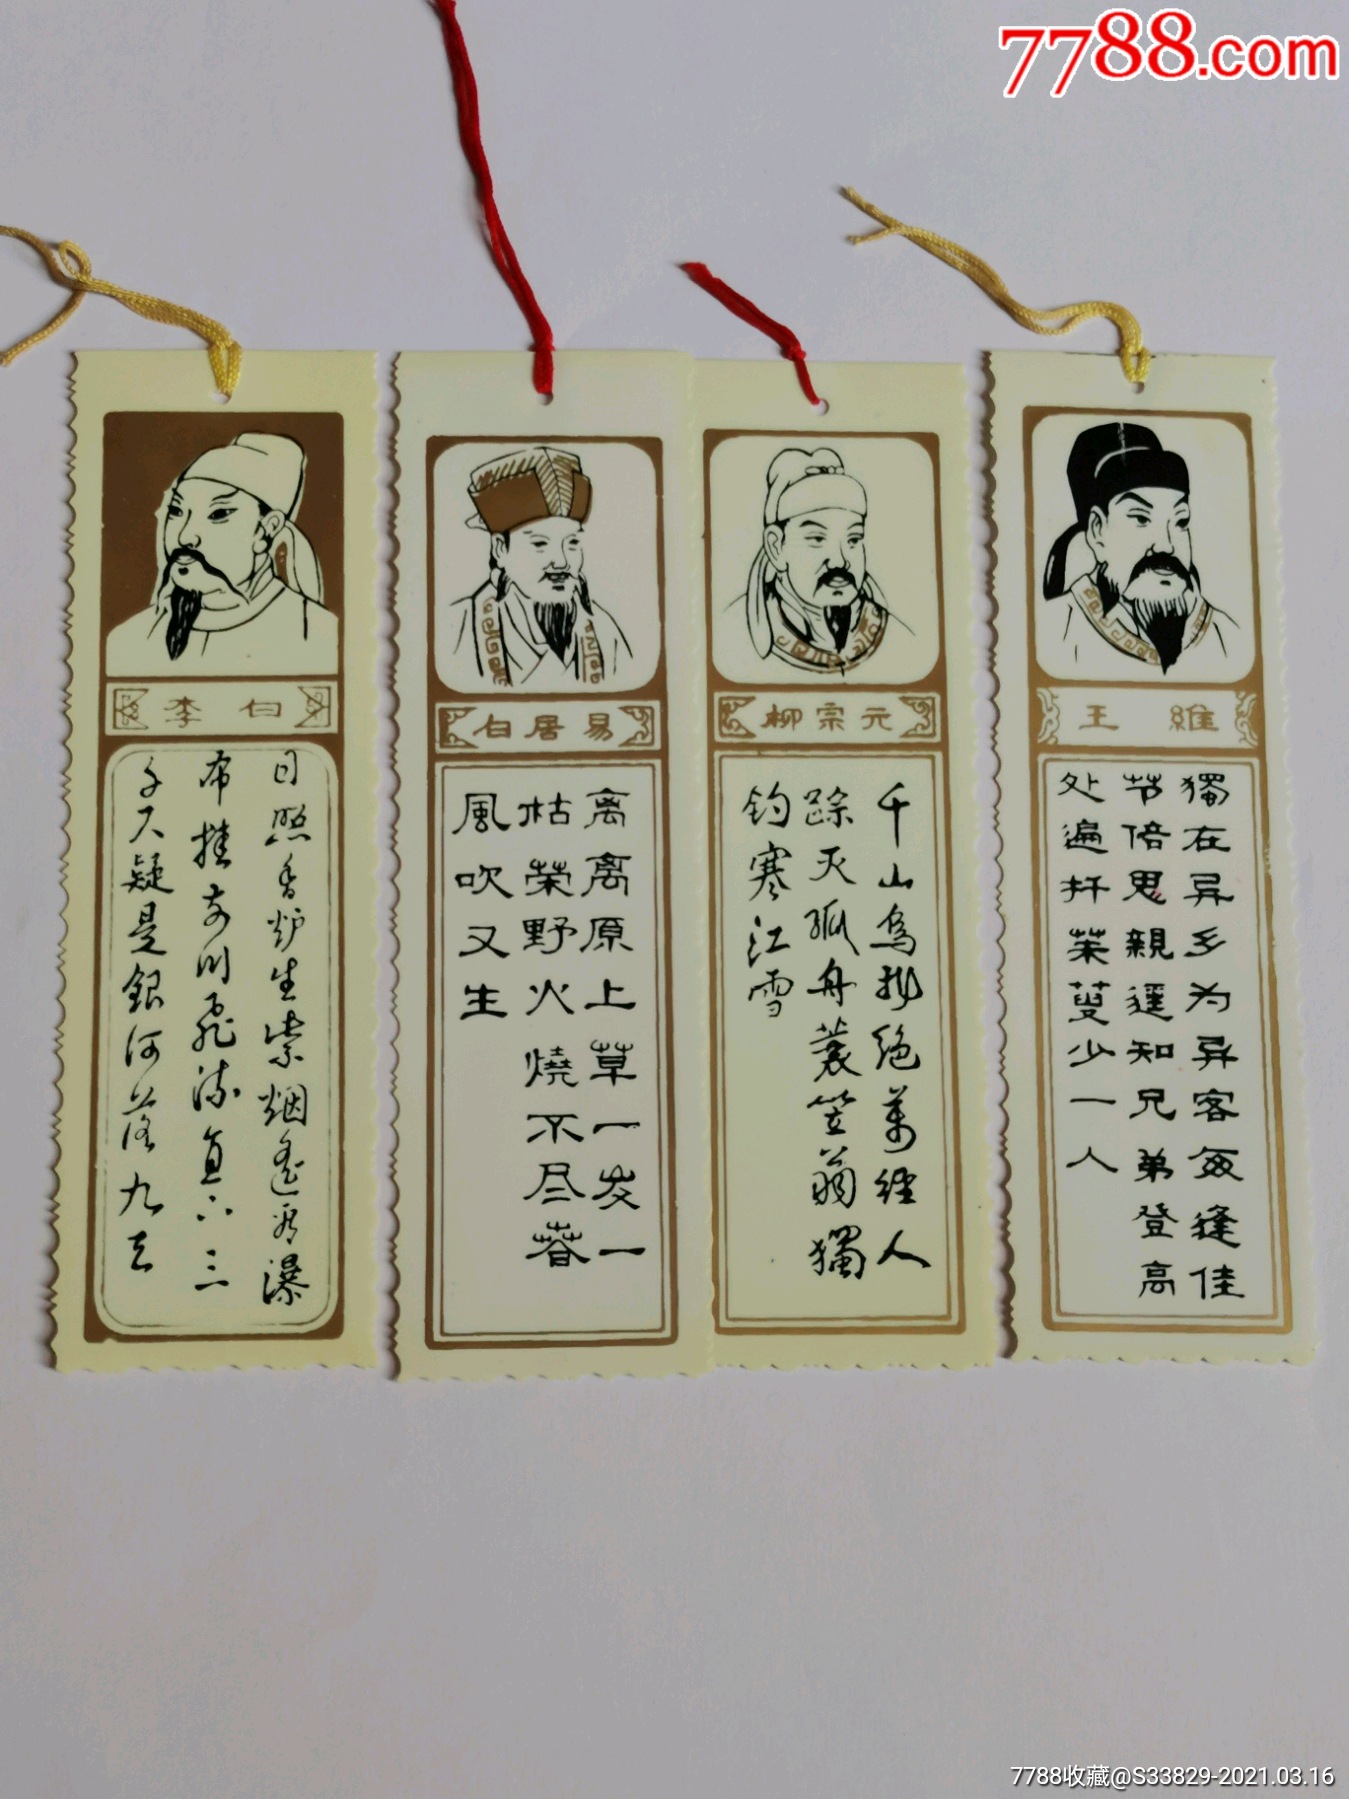 7788.com
李白
日照香炉生紫烟遥看瀑
布挂前川飛流直下三
千尺疑是銀河落九天
白居易
离离原上草一岁一
枯荣野火燒不尽春
風吹又生
柳宗元
千山鸟飛绝萬径人
踪灭孤舟蓑笠翁獨
钓寒江雪
王維
獨在异乡为异客每逢佳
节倍思親遥知兄弟登高
处遍插茱萸少一人
7788收藏@S33829-2021.03.16